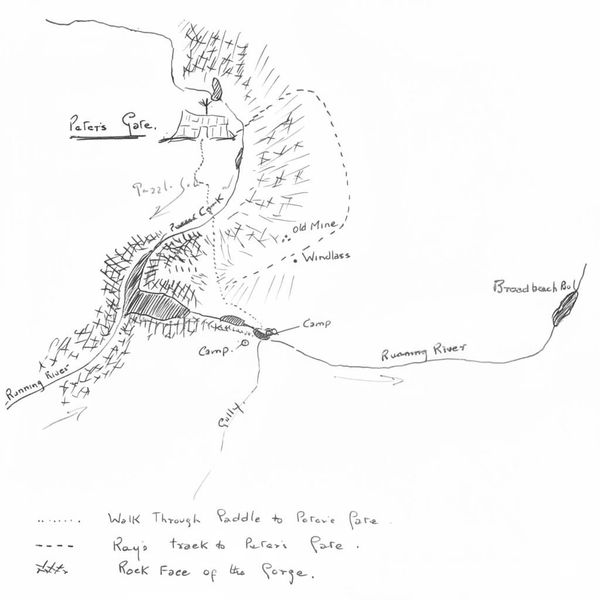 Peter's Gate.
Creek
Old Mine
Windlass
Broadbeach
Camp
Camp.
Running River
Running River
Gully
Walk Through Paddle to Peter's Gate.
Ray's track to Peter's Gate.
Rock Face of the Gorge.